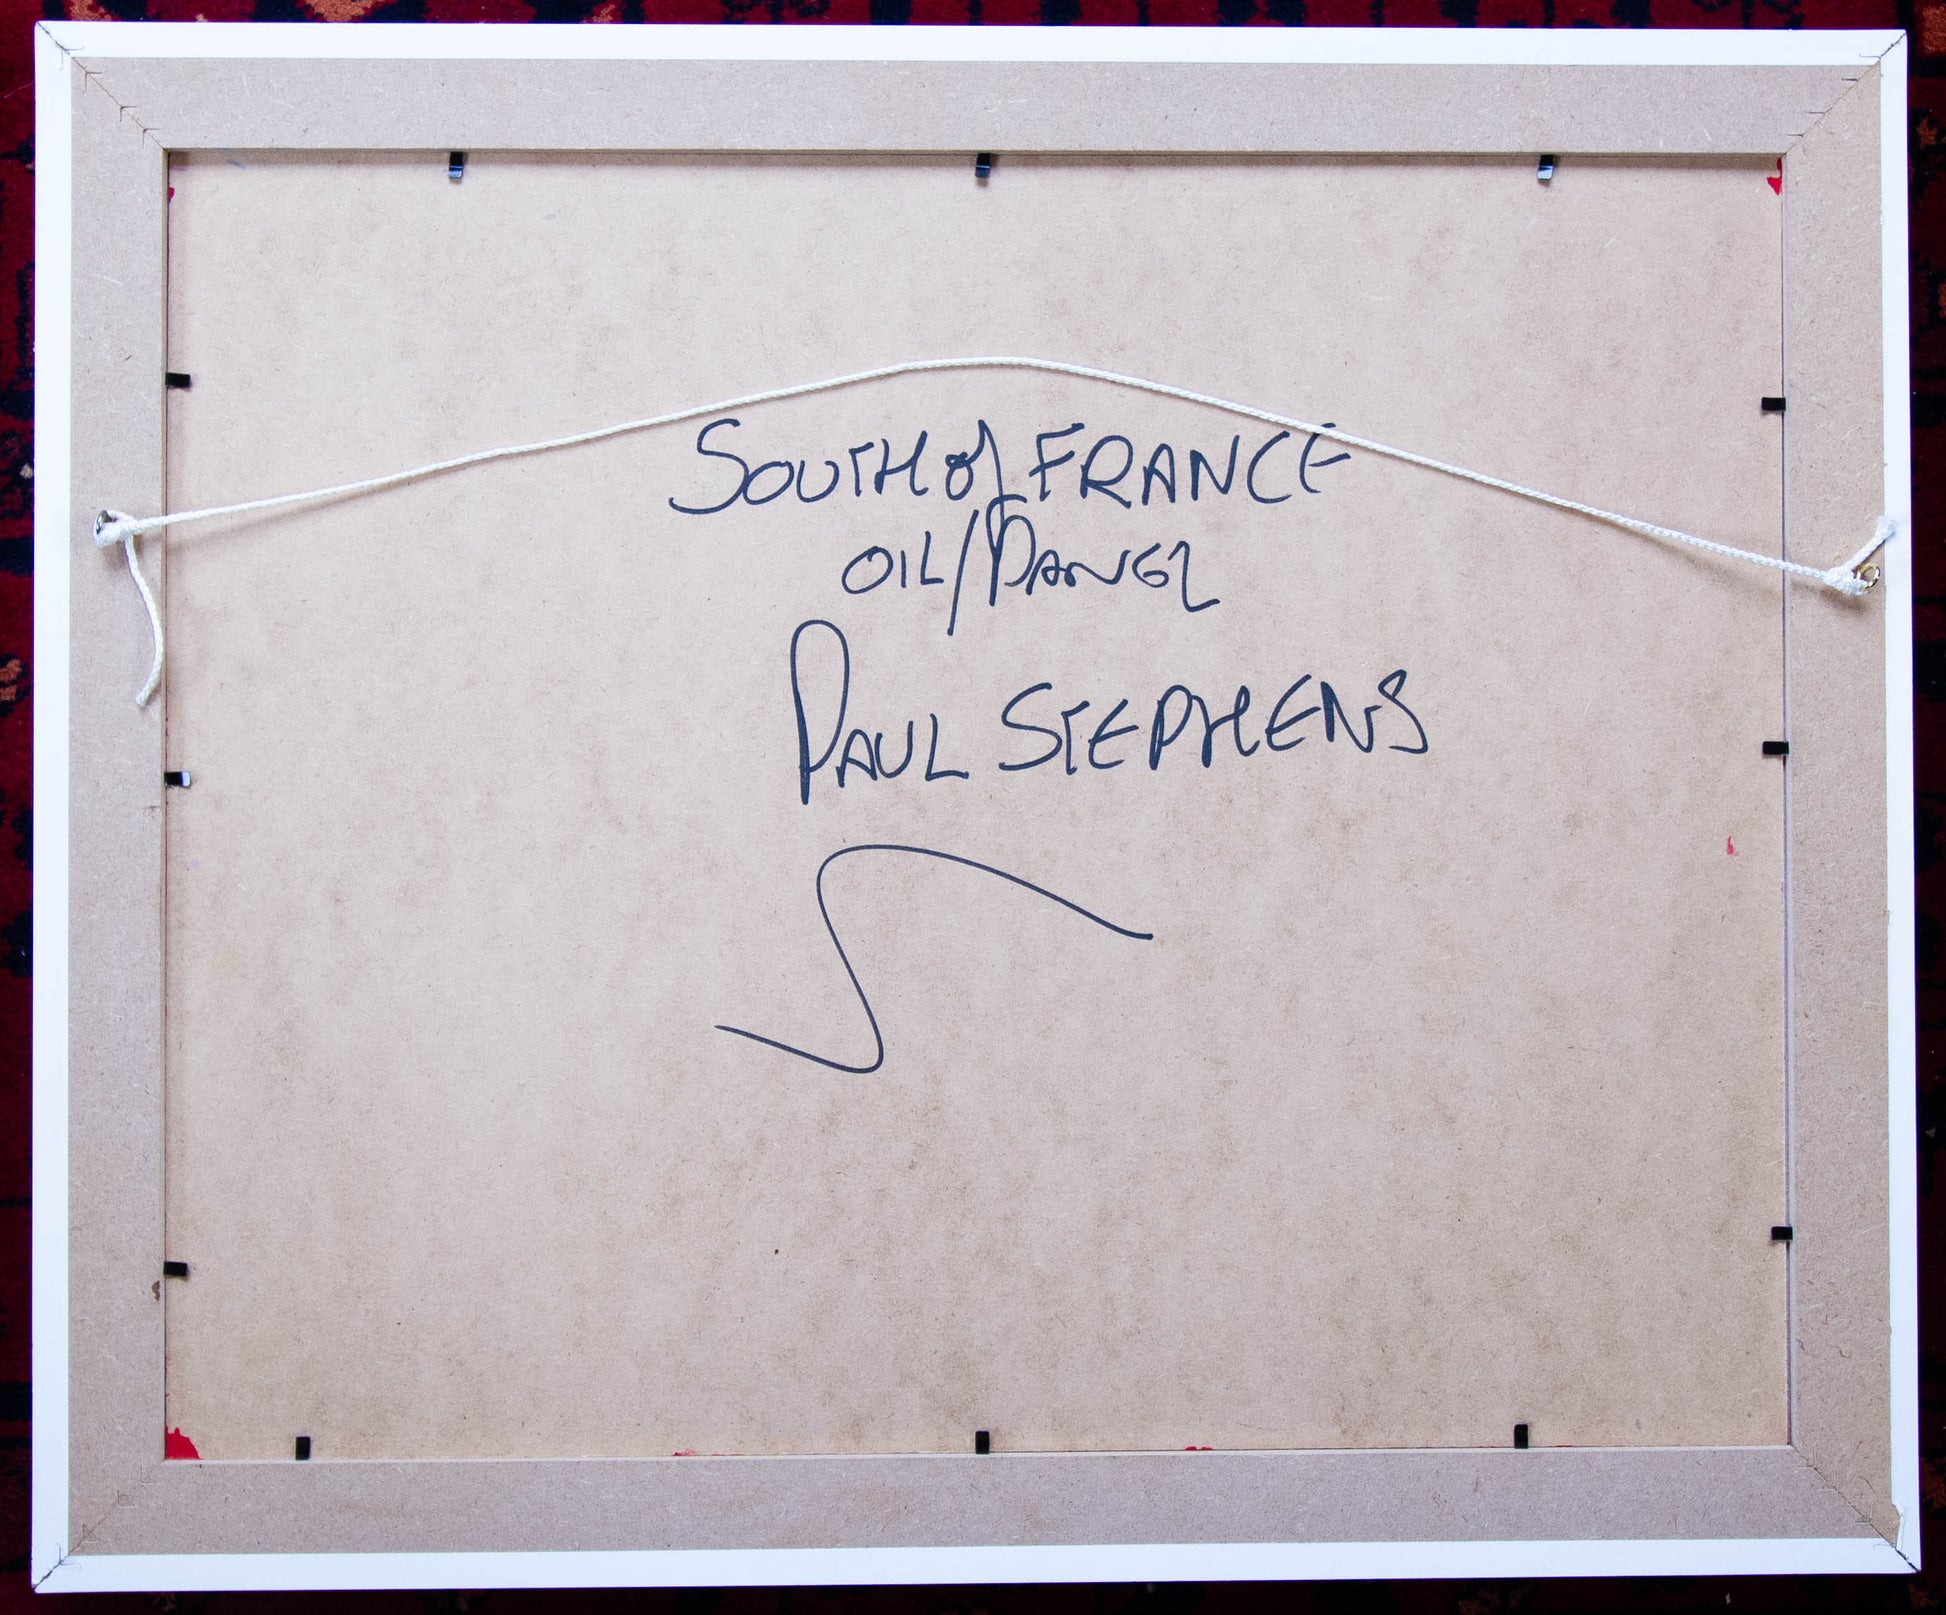 SOUTH of FRANCE
OIL/PANEL
PAUL STEPHENS